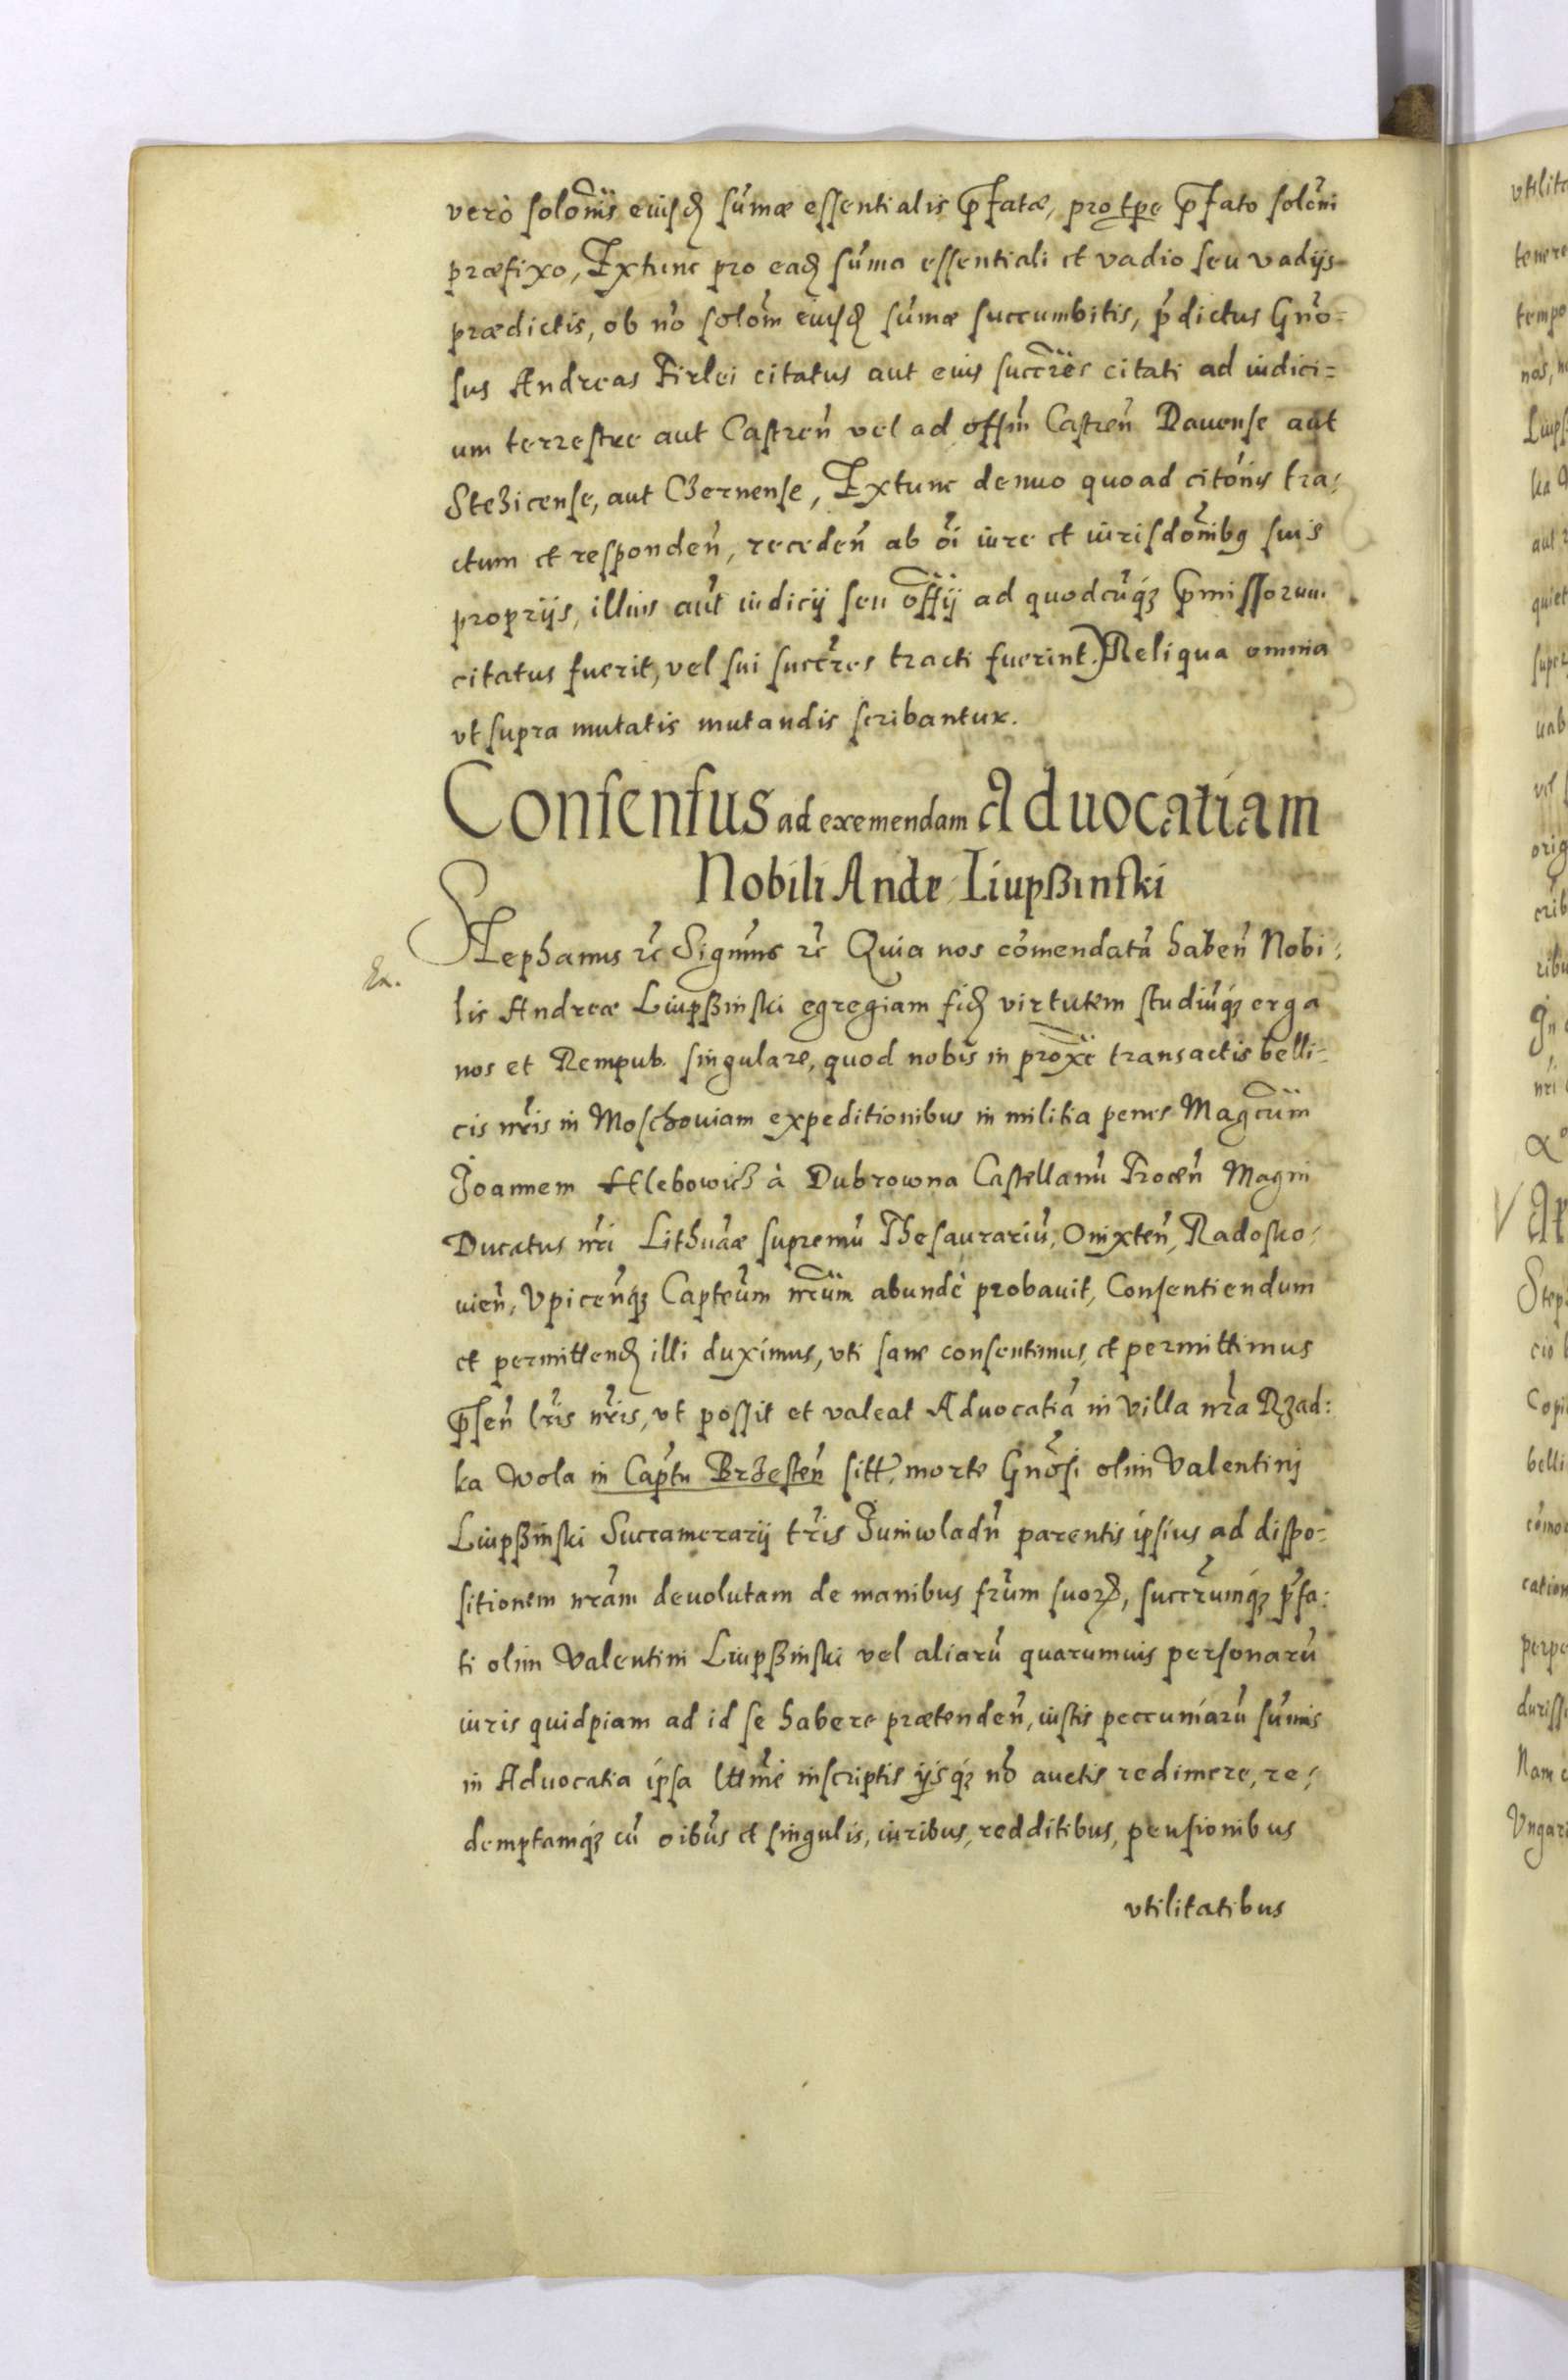 verò solõnis eiusd sũmæ essentialis p̃fatæ, pro tpe p̃fato solõni
præfixo, Extunc pro ead sũma essentiali et vadio seu vadijs
prædictis, ob nõ solõm eiusd sũmæ succumbitis, p̃dictus Gnõ=
sus Andreas Firlei citatus aut eius succr̃es citati ad iudici=
um terrestre aut Castreñ vel ad offm̃ Castreñ Rauense aut
Stezicense, aut Czernense, Extunc denuo quoad citõnis tra:
ctum et respondeñ, recedeñ ab oĩ iure et iurisdõnibq suis
proprijs, illius aũt iudicij seu offij ad quodcũqz p̃missorum
citatus fuerit, vel sui succr̃es tracti fuerint.) Reliqua omnia
vt supra mutatis mutandis scribantur.
Consensus ad exemendam Aduocatiam
Nobili Andr Liupßinski
Stephanus rc̃ Signm̃s rc̃ Quia nos cõmendatã habeñ Nobi:
lis Andreæ Liupßinski egregiam fid virtutem studiũqz erga
nos et Rempub. singulare, quod nobis in proxẽ transactis belli=
cis nr̃is in Moschouiam expeditionibus in militia penes Magcũm
Joannem Hlebowicz à Dubrowna Castellanũ Troceñ Magni
Ducatus nr̃i Lithuãæ supremũ Thesaurariũ, Onixteñ, Radosko:
uieñ, Vpiceñqz Capteũm nr̃um abundè probauit, Consentiendum
et permittend illi duximus, vti sane consentimus, et permittimus
p̃señ lr̃is nr̃is, vt possit et valeat Aduocatiã in villa nr̃a Rzad:
ka Wola in Cap̃tu Brzesteñ sitt, morte Gnõsi olim Valentinj
Liupßinski Succamerarij tr̃is Juniwladñ parentis ipsius ad dispo=
sitionem nr̃am deuolutam de manibus frũm suorꝝ, succr̃umqz p̃fa:
ti olim Valentini Liupßinski vel aliarũ quarumuis personarũ
iuris quidpiam ad id se habere prætendeñ, iustis peccuniarũ sũmis
in Aduocatia ipsa lttm̃e inscriptis ijsqz nõ auctis redimere, re:
demptamqz cũ oibũs et singulis, iuribus, redditibus, pensionibus
vtilitatibus